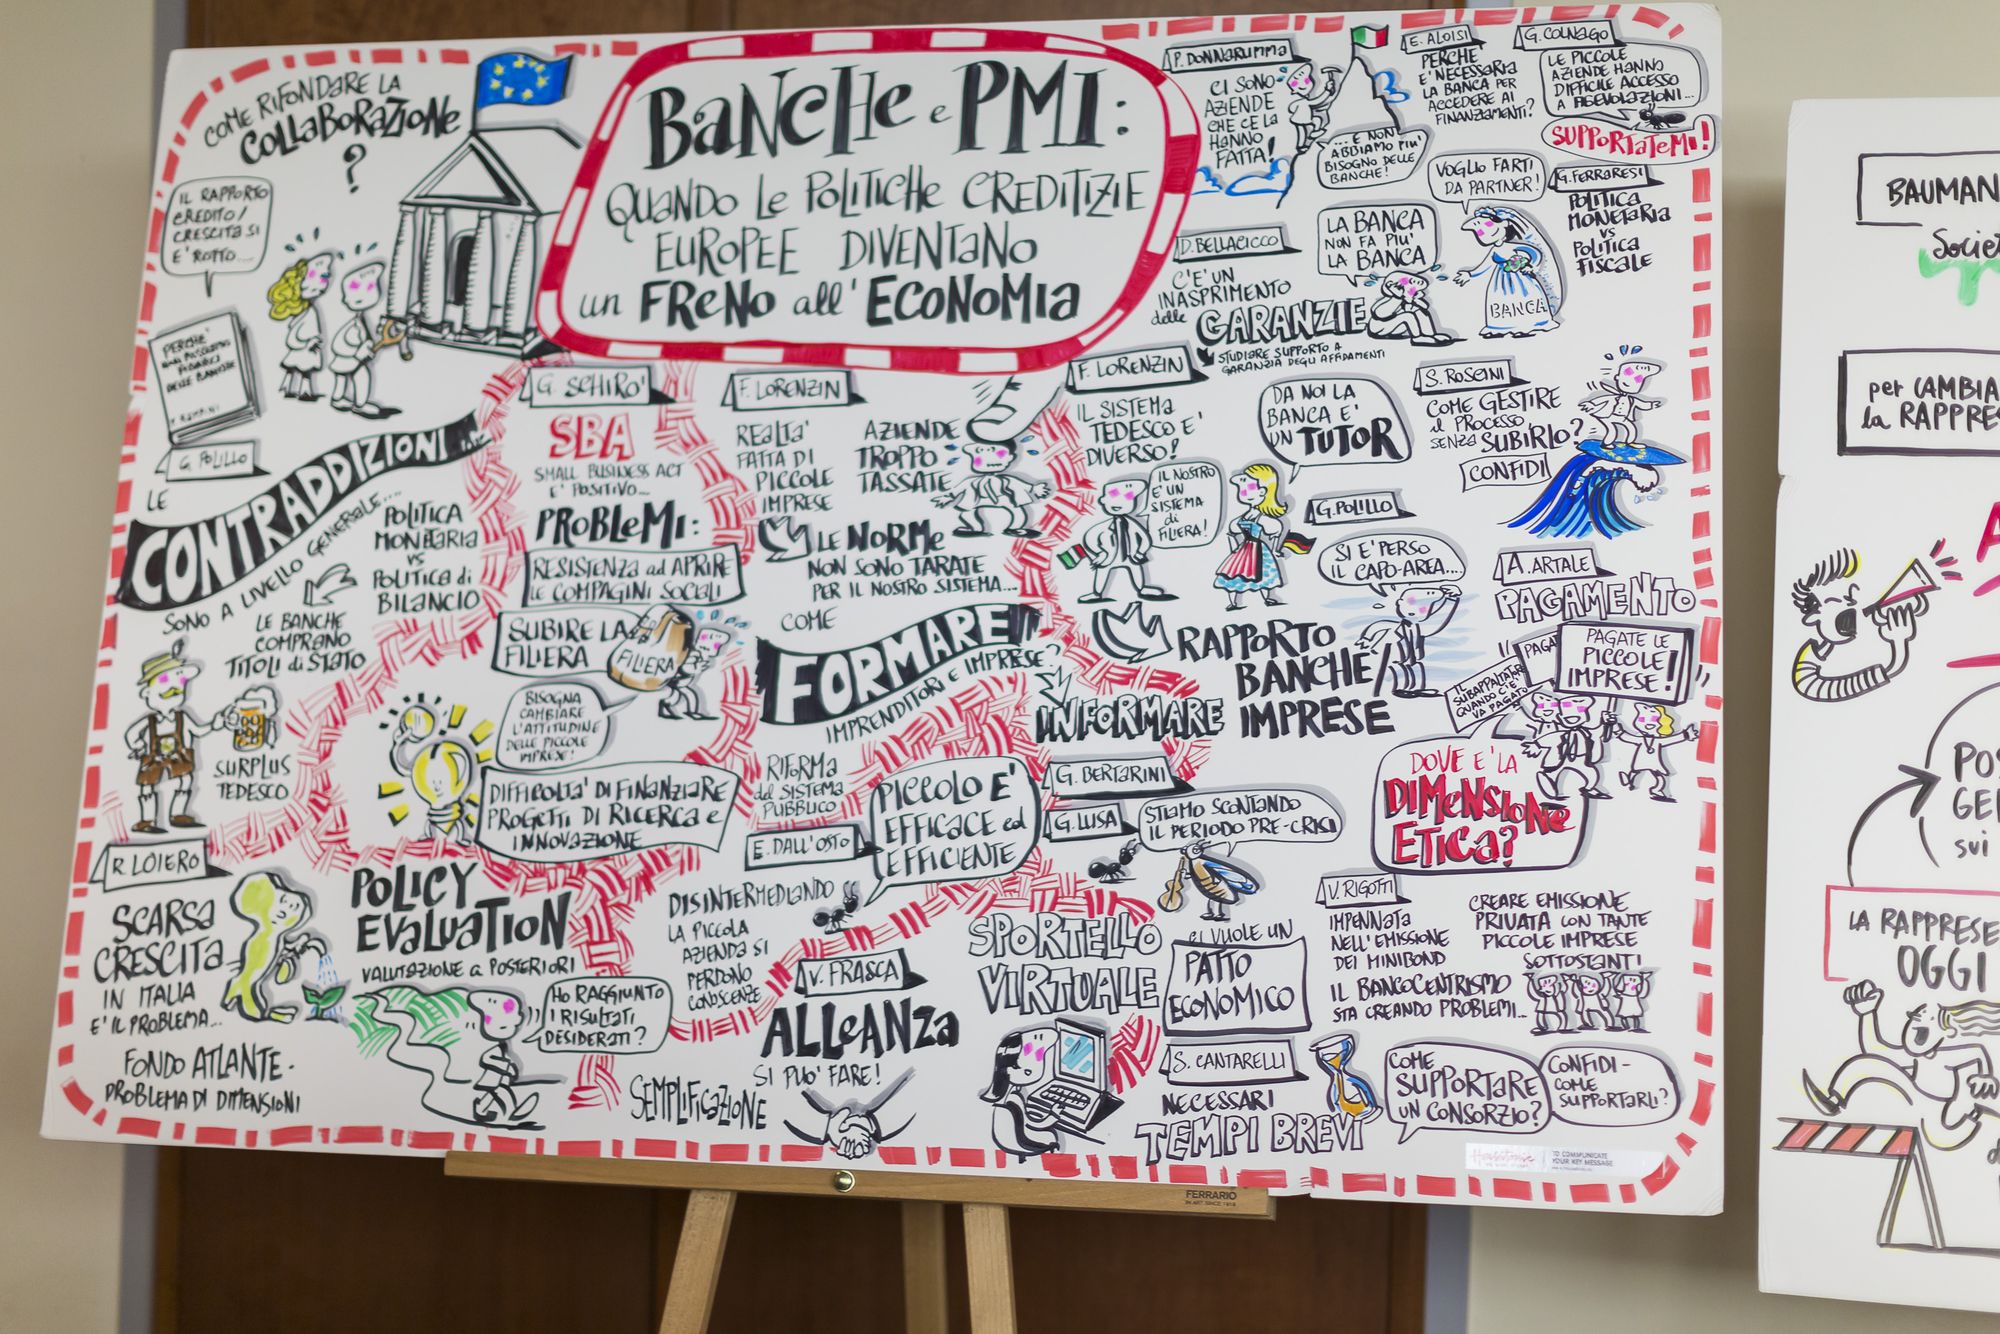 COME RIFONDARE LA
COLLABORAZIONE
?
IL RAPPORTO
CREDITO/
CRESCITA SI
E' ROTTO...
PERCHE'
DELLE BANCHE
BANCHE e PMI:
QUANDO LE POLITICHE CREDITIZIE
EUROPEE DIVENTANO
un FRENO all'ECONOMIA
P. DONNARUMMA
CI SONO
AZIENDE
CHE CE LA
HANNO
FATTA!
... E NON
ABBIAMO PIU'
BISOGNO DELLE
BANCHE!
E. ALOISI
PERCHE
E' NECESSARIA
LA BANCA PER
ACCEDERE AI
FINANZIAMENTI?
G. COLNAGO
LE PICCOLE
AZIENDE HANNO
DIFFICILE ACCESSO
A AGEVOLAZIONI...
SUPPORTATEMI!
D. BELLACICCO
C'E' UN
INASPRIMENTO
delle
GARANZIE
STUDIARE SUPPORTO A
GARANZIA DEGLI AFFIDAMENTI
LA BANCA
NON FA PIU'
LA BANCA
VOGLIO FARTI
DA PARTNER!
BANCA
G. FERRARESI
POLITICA
MONETARIA
VS
POLITICA
FISCALE
G. POLILLO
LE
CONTRADDIZIONI
SONO A LIVELLO GENERALE...
POLITICA
MONETARIA
VS
POLITICA di
BILANCIO
LE BANCHE
COMPRANO
TITOLI di STATO
SURPLUS
TEDESCO
G. SCHIRO'
SBA
SMALL BUSINESS ACT
E' POSITIVO...
PROBLEMI:
RESISTENZA ad APRIRE
LE COMPAGINI SOCIALI
SUBIRE LA
FILIERA
FILIERA
BISOGNA
CAMBIARE
L'ATTITUDINE
DELLE PICCOLE
IMPRESE!
DIFFICOLTA' DI FINANZIARE
PROGETTI DI RICERCA e
INNOVAZIONE
F. LORENZIN
REALTA'
FATTA DI
PICCOLE
IMPRESE
AZIENDE
TROPPO
TASSATE
LE NORME
NON SONO TARATE
PER IL NOSTRO SISTEMA...
COME
FORMARE
IMPRENDITORI E IMPRESE?
F. LORENZIN
IL SISTEMA
TEDESCO E'
DIVERSO!
IL NOSTRO
E' UN
SISTEMA
di
FILIERA!
DA NOI LA
BANCA E'
UN TUTOR
S. ROSSINI
COME GESTIRE
il PROCESSO
SENZA SUBIRLO?
CONFIDI
G. POLILLO
SI E' PERSO
IL CAPO-AREA...
RAPPORTO
BANCHE/
IMPRESE
INFORMARE
A. ARTALE
PAGAMENTO
PAGAT
PAGATE LE
PICCOLE
IMPRESE!
QUANDO C'E'
VA PAGATO
DOVE E' LA
DIMENSIONE
ETICA?
R. LOIERO
SCARSA
CRESCITA
IN ITALIA
E' IL PROBLEMA...
FONDO ATLANTE -
PROBLEMA DI DIMENSIONI
POLICY
EVALUATION
VALUTAZIONE a POSTERIORI
HO RAGGIUNTO
I RISULTATI
DESIDERATI?
RIFORMA
del SISTEMA
PUBBLICO
E. DALL'OSTO
PICCOLO E'
EFFICACE ed
EFFICIENTE
DISINTERMEDIANDO
LA PICCOLA
AZIENDA SI
PERDONO
CONOSCENZE
SEMPLIFICAZIONE
V. FRASCA
ALLEANZA
SI PUO' FARE!
G. BERTARINI
G. LUSA
STIAMO SCONTANDO
IL PERIODO PRE-CRISI
SPORTELLO
VIRTUALE
CI VUOLE UN
PATTO
ECONOMICO
S. CANTARELLI
NECESSARI
TEMPI BREVI
V. RIGOTTI
IMPENNATA
NELL'EMISSIONE
DEI MINIBOND
IL BANCOCENTRISMO
STA CREANDO PROBLEMI...
CREARE EMISSIONE
PRIVATA CON TANTE
PICCOLE IMPRESE
SOTTOSTANTI
COME
SUPPORTARE
UN CONSORZIO?
CONFIDI -
COME
SUPPORTARLI?
TO COMMUNICATE
YOUR KEY MESSAGE
FERRARIO
BAUMAN
per CAMBIA
la RAPPRES
LA RAPPRESE
OGGI